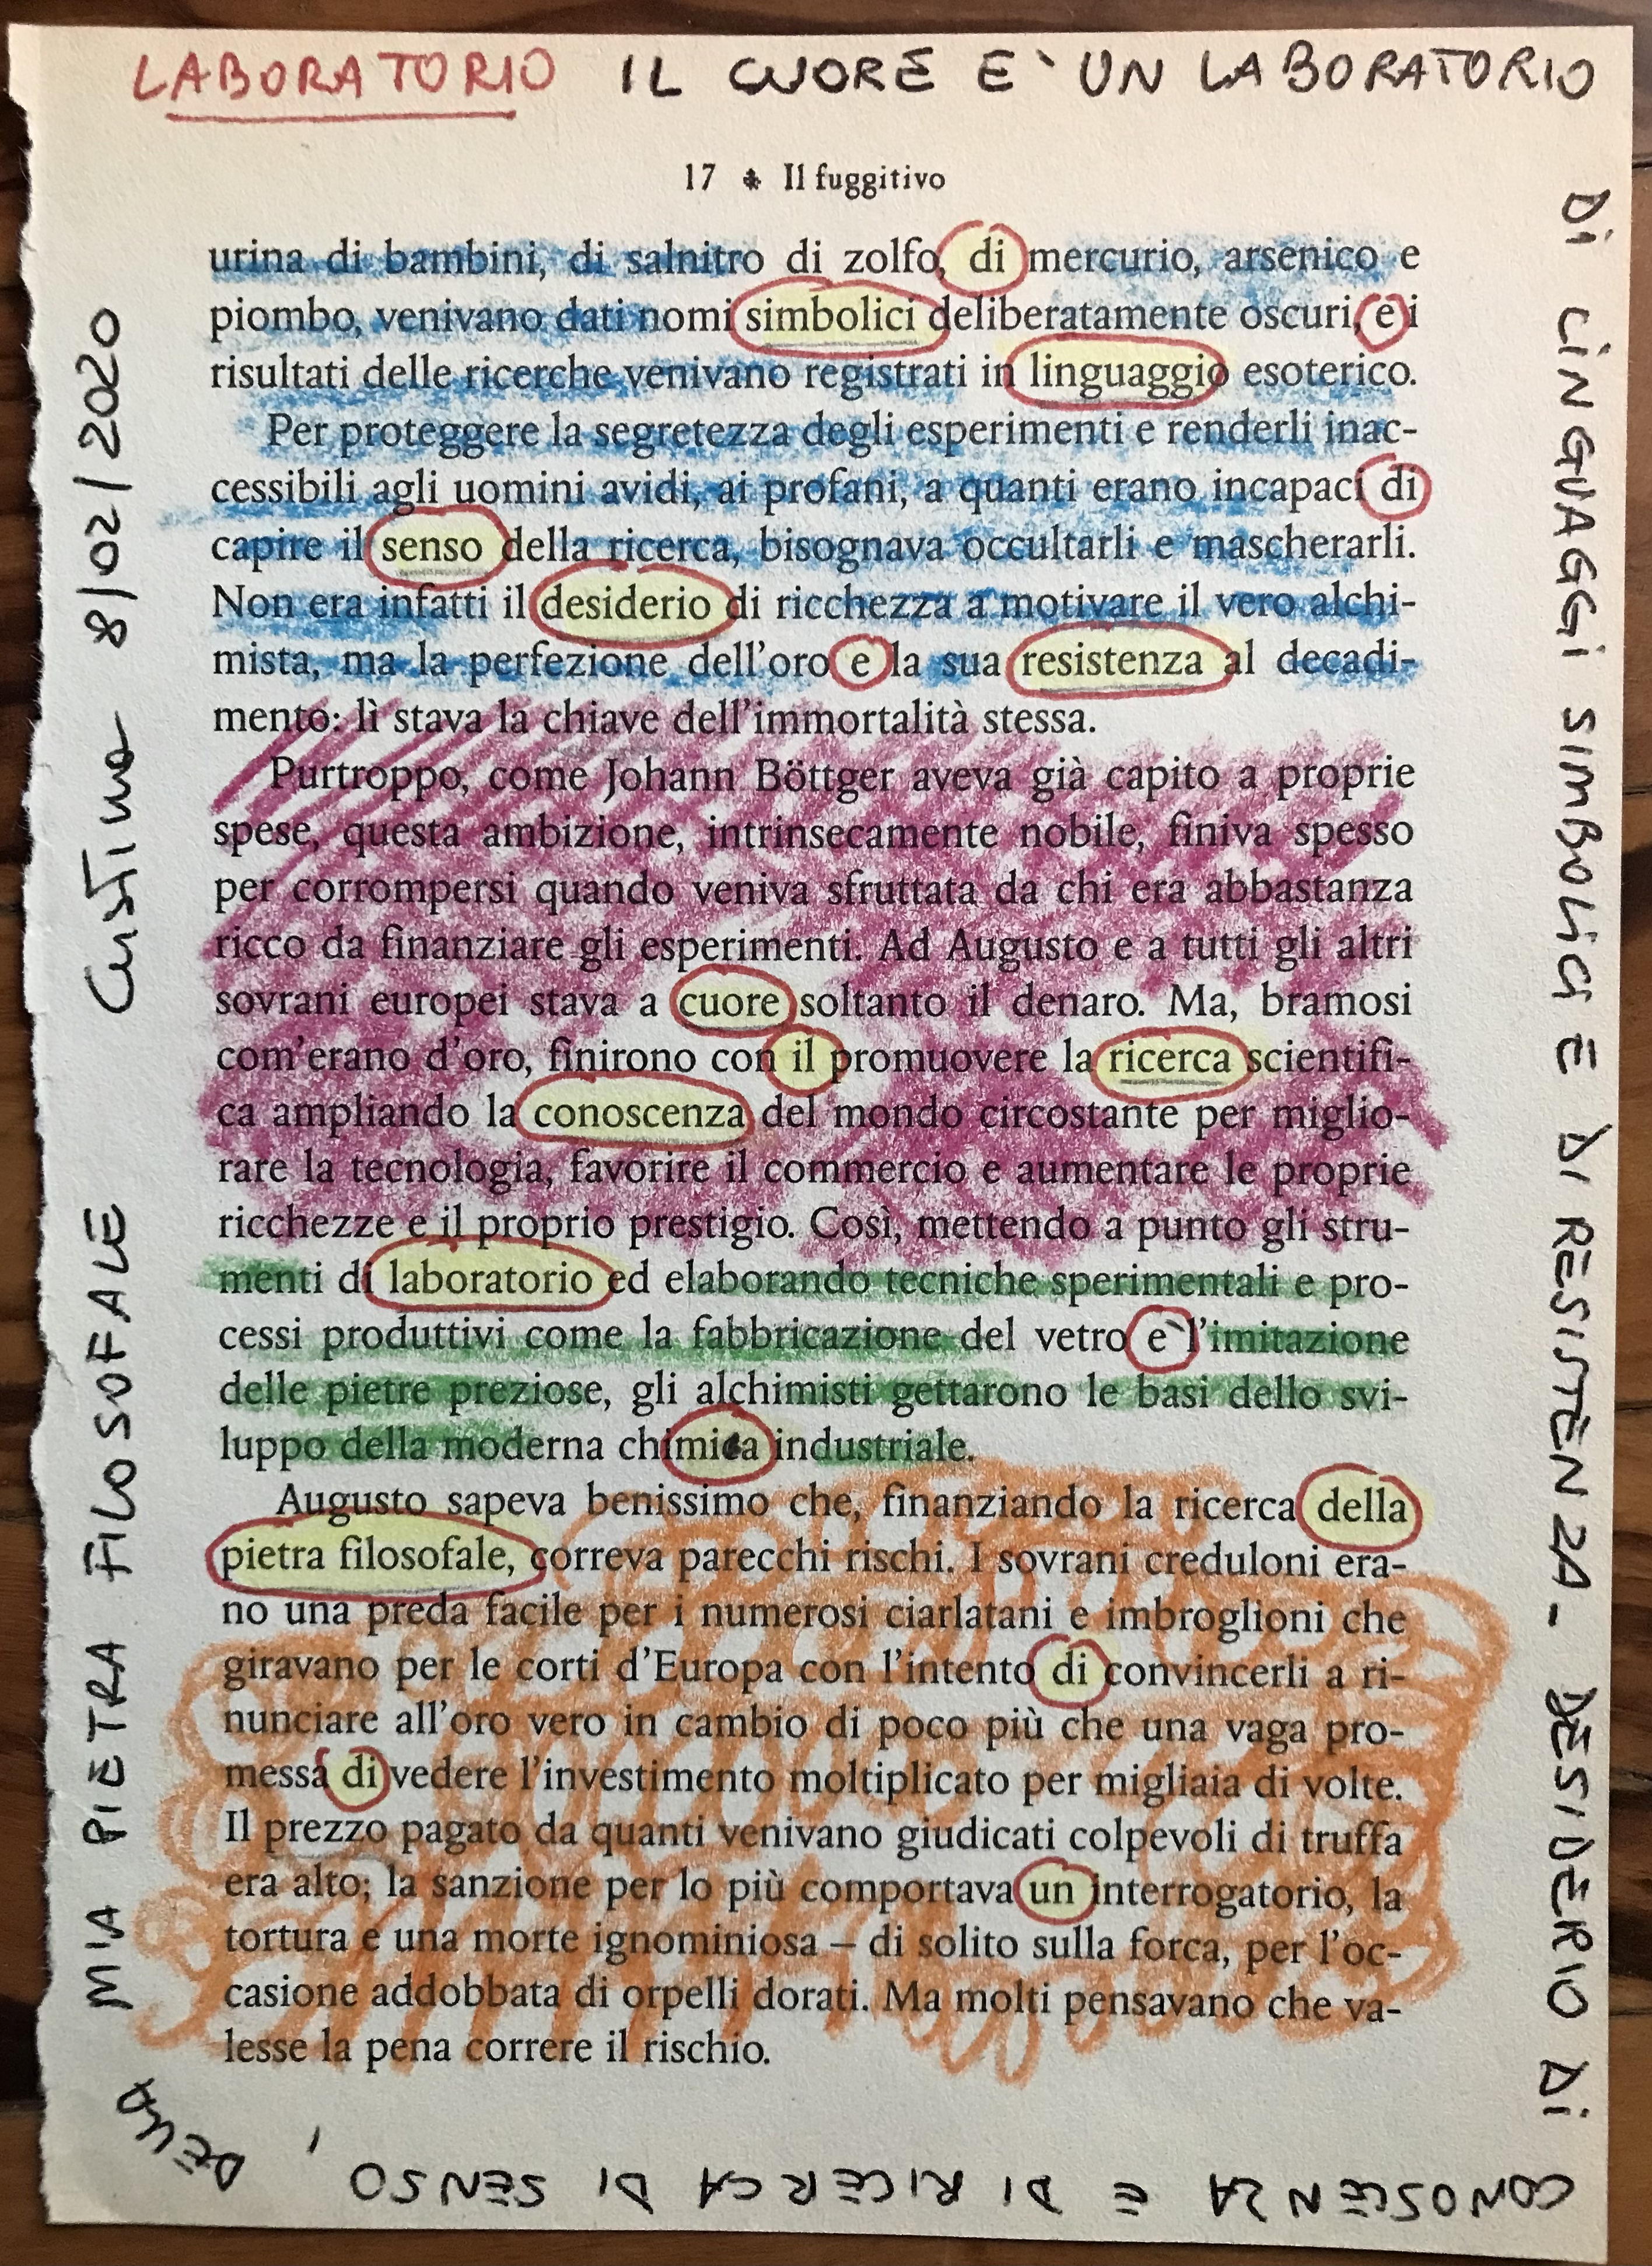 LABORATORIO IL CUORE E` UN LABORATORIO
17 Il fuggitivo
urina di bambini, di salnitro di zolfo, di mercurio, arsenico e
piombo, venivano dati nomi simbolici deliberatamente oscuri, e i
risultati delle ricerche venivano registrati in linguaggio esoterico.
Per proteggere la segretezza degli esperimenti e renderli inac-
cessibili agli uomini avidi, ai profani, a quanti erano incapaci di
capire il senso della ricerca, bisognava occultarli e mascherarli.
Non era infatti il desiderio di ricchezza a motivare il vero alchi-
mista, ma la perfezione dell'oro e la sua resistenza al decadi-
mento: lì stava la chiave dell'immortalità stessa.
Purtroppo, come Johann Böttger aveva già capito a proprie
spese, questa ambizione, intrinsecamente nobile, finiva spesso
per corrompersi quando veniva sfruttata da chi era abbastanza
ricco da finanziare gli esperimenti. Ad Augusto e a tutti gli altri
sovrani europei stava a cuore soltanto il denaro. Ma, bramosi
com'erano d'oro, finirono con il promuovere la ricerca scientifi-
ca ampliando la conoscenza del mondo circostante per miglio-
rare la tecnologia, favorire il commercio e aumentare le proprie
ricchezze e il proprio prestigio. Così, mettendo a punto gli stru-
menti di laboratorio ed elaborando tecniche sperimentali e pro-
cessi produttivi come la fabbricazione del vetro e` l'imitazione
delle pietre preziose, gli alchimisti gettarono le basi dello svi-
luppo della moderna chimica industriale.
Augusto sapeva benissimo che, finanziando la ricerca della
pietra filosofale, correva parecchi rischi. I sovrani creduloni era-
no una preda facile per i numerosi ciarlatani e imbroglioni che
giravano per le corti d'Europa con l'intento di convincerli a ri-
nunciare all'oro vero in cambio di poco più che una vaga pro-
messa di vedere l'investimento moltiplicato per migliaia di volte.
Il prezzo pagato da quanti venivano giudicati colpevoli di truffa
era alto; la sanzione per lo più comportava un interrogatorio, la
tortura e una morte ignominiosa – di solito sulla forca, per l'oc-
casione addobbata di orpelli dorati. Ma molti pensavano che va-
lesse la pena correre il rischio.
Di LiNGUAGGi SIMBOLiCi E Di RESISTENZA - DESIDERIO Di
CONOSCENZA E DI RICERCA DI SENSO, DELLA
MIA PIETRA FILOSOFALE
8/02/2020